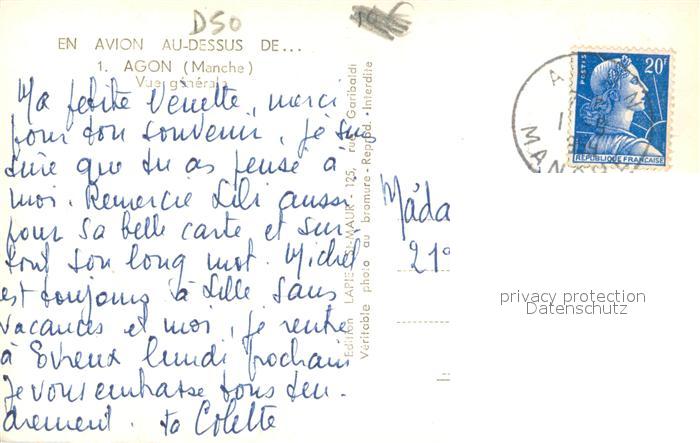 D50
EN AVION AU-DESSUS DE...
1. AGON (Manche)
Vue générale
Ma petite Venette, merci
pour ton souvenir, je suis
sûre que tu as pensé à
moi. Remercie Lili aussi
pour sa belle carte et sur-
tout son long mot. Michel
est toujours à Lille sans
vacances et moi, je rentre
à Evreux lundi prochain
Je vous embrasse tous ten-
drement. ta Colette
Edition LAPIE ST-MAUR - 125, rue Garibaldi
Véritable photo au bromure - Reprod. Interdite
POSTES
20F
REPUBLIQUE FRANÇAISE
A
MAN
Mada
21
privacy protection
Datenschutz